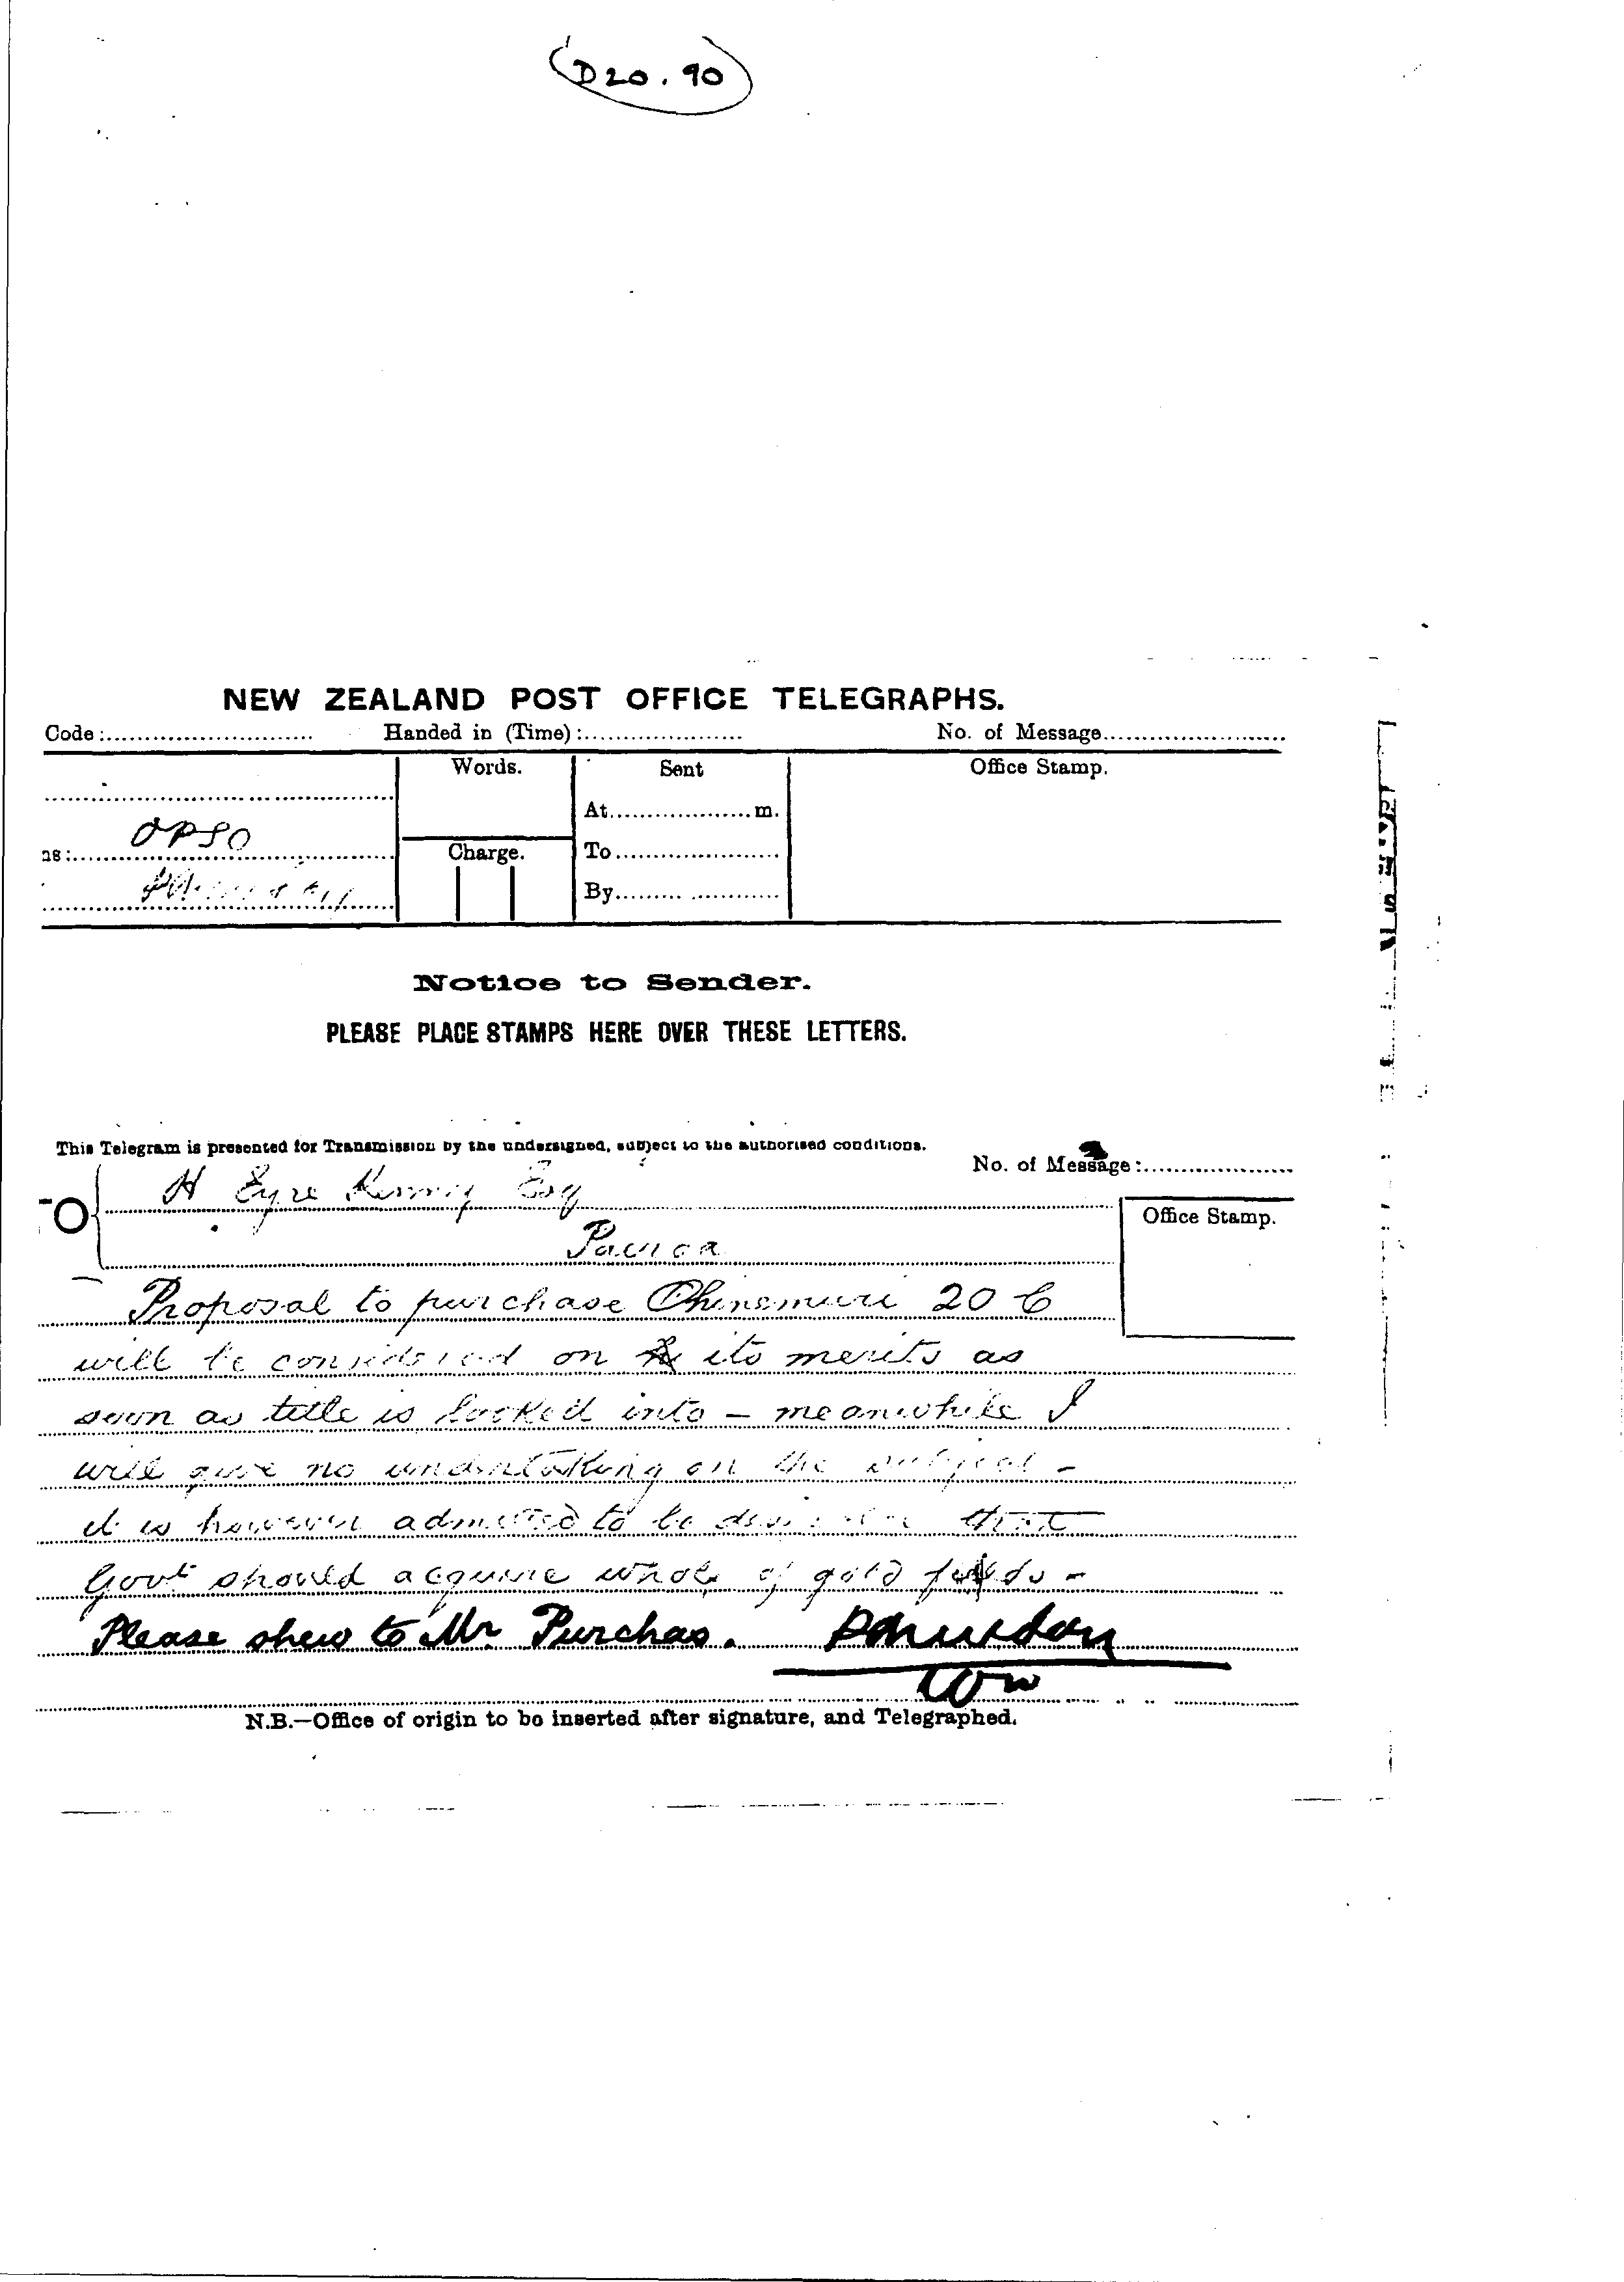 D20.90
NEW ZEALAND POST OFFICE TELEGRAPHS.
Code: Handed in (Time): No. of Message
Words. Sent Office Stamp.
At m.
OPSO
Charge. To
By
Notice to Sender.
PLEASE PLACE STAMPS HERE OVER THESE LETTERS.
This Telegram is presented for Transmission by the undersigned, subject to the authorised conditions.
No. of Message:
H Eyre Kenny Esq
Office Stamp.
Paeroa
Proposal to purchase Ohinemuri 20
will be considered on its merits as
soon as title is looked into – meanwhile I
will give no undertaking on the subject –
it is however admitted to be that
Govt should acquire whole of gold fields –
Please shew to Mr Purchas.
N.B.—Office of origin to be inserted after signature, and Telegraphed.